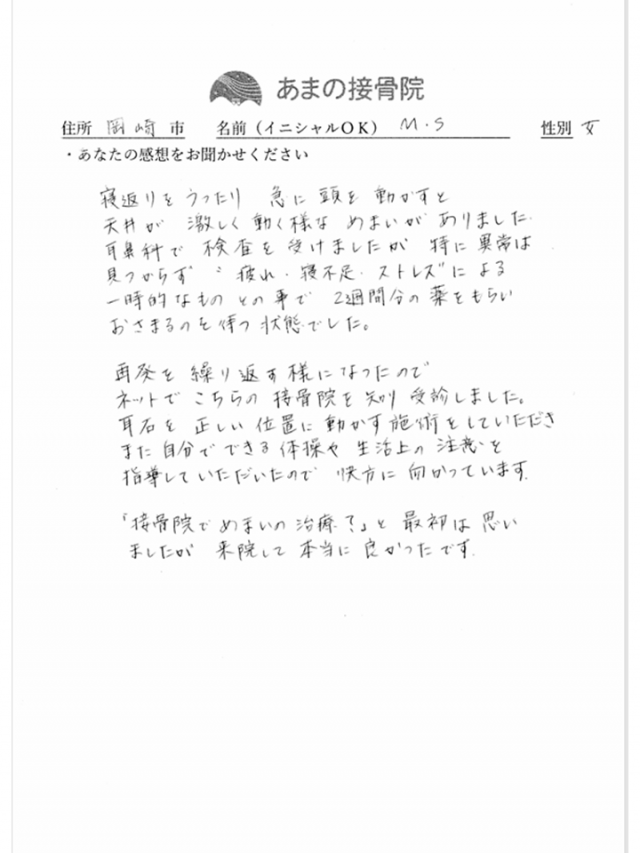 あまの接骨院
住所 岡崎 市 名前(イニシャルOK) M・S 性別 女
・あなたの感想をお聞かせください
寝返りをうったり 急に頭を動かすと
天井が 激しく動く様な めまいがありました。
耳鼻科で 検査を受けましたが 特に異常は
見つからず “疲れ・寝不足・ストレス”による
一時的なもの との事で 2週間分の薬をもらい
おさまるのを待つ状態でした。
再発を繰り返す様になったので
ネットで こちらの接骨院を知り 受診しました。
耳石を 正しい位置に動かす施術をしていただき
また自分でできる体操や 生活上の注意を
指導していただいたので 快方に向かっています。
「接骨院でめまいの治療?」と 最初は思い
ましたが 来院して本当に良かったです。